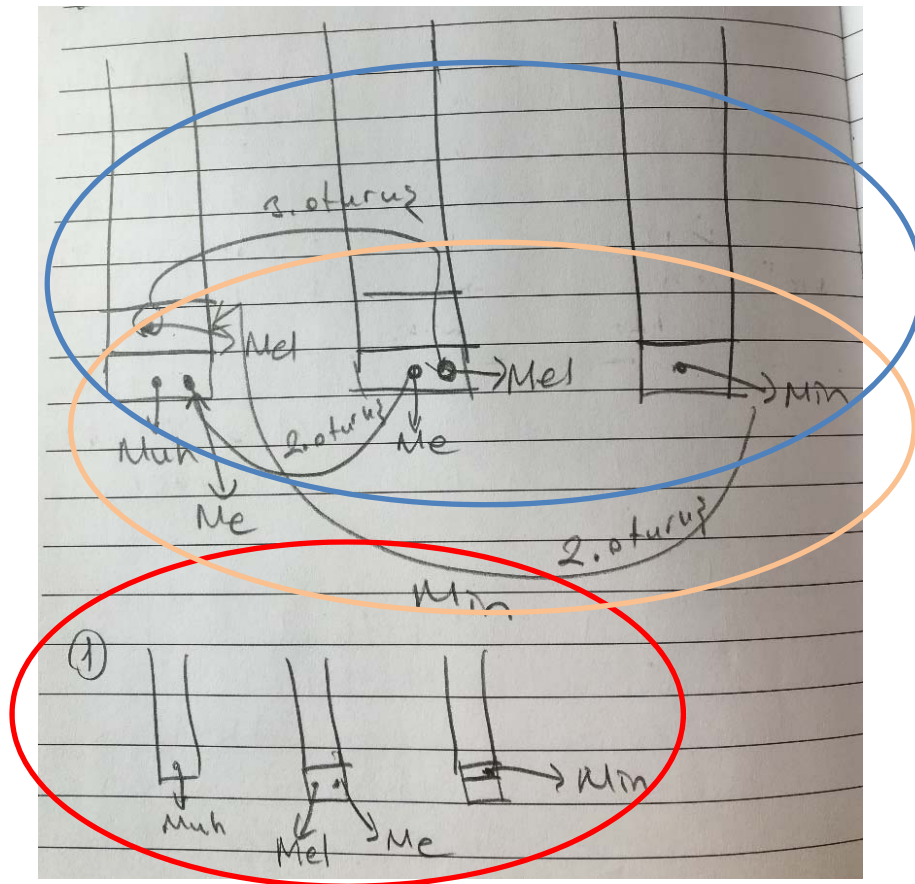 3. oturuş
Mel
Mel
Min
Muh
2. oturuş
Me
Me
2. oturuş
Min
1
Min
Muh
Mel
Me